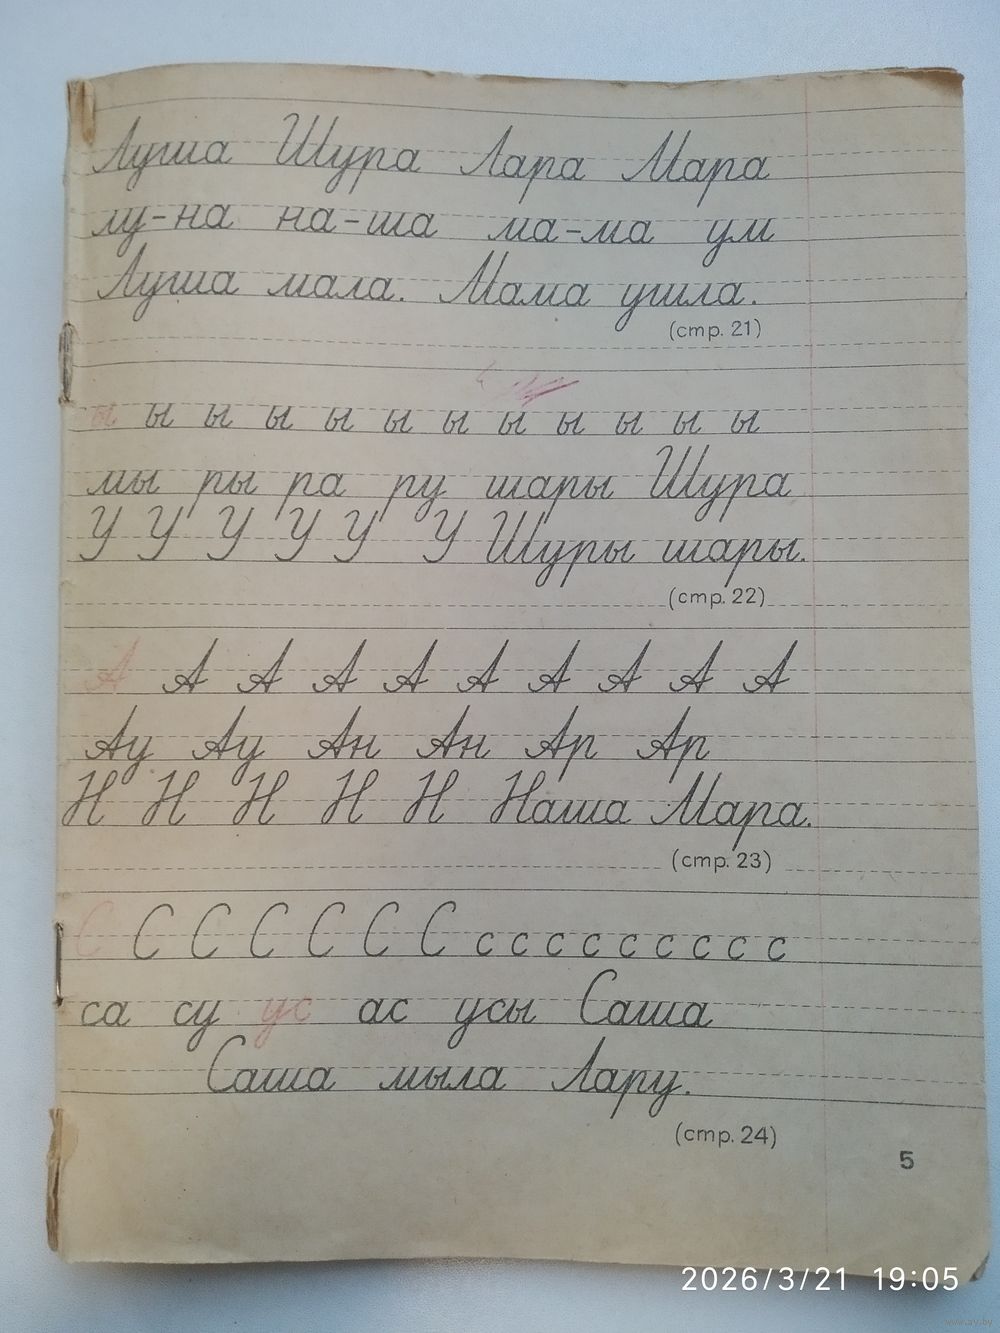 Луша Шура Лара Мара
лу-на на-ша ма-ма ум
Луша мала. Мама ушла.
(стр. 21)
ы ы ы ы ы ы ы ы ы ы ы ы
мы ры ра ру шары Шура
У У У У У У Шуры шары.
(стр. 22)
А А А А А А А А А А
Ау Ау Ан Ан Ар Ар
Н Н Н Н Н Наша Мара.
(стр. 23)
С С С С С С С с с с с с с с с с
са су ус ас усы Саша
Саша мыла Лару.
(стр. 24)
5
2026/3/21 19:05
www.ay.by